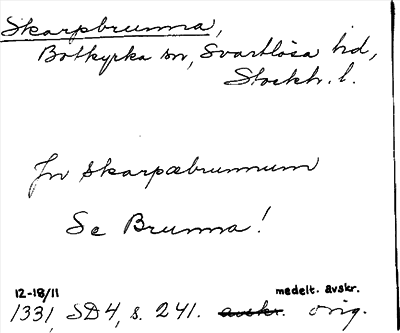 Skarpbrunna,
Botkyrka sn, Svartlösa hd,
Stockh. l.
Jn Skarpæbrunnum
Se Brunna!
12-18/11 medelt. avskr.
1331, SD4, s. 241. avskr. orig.